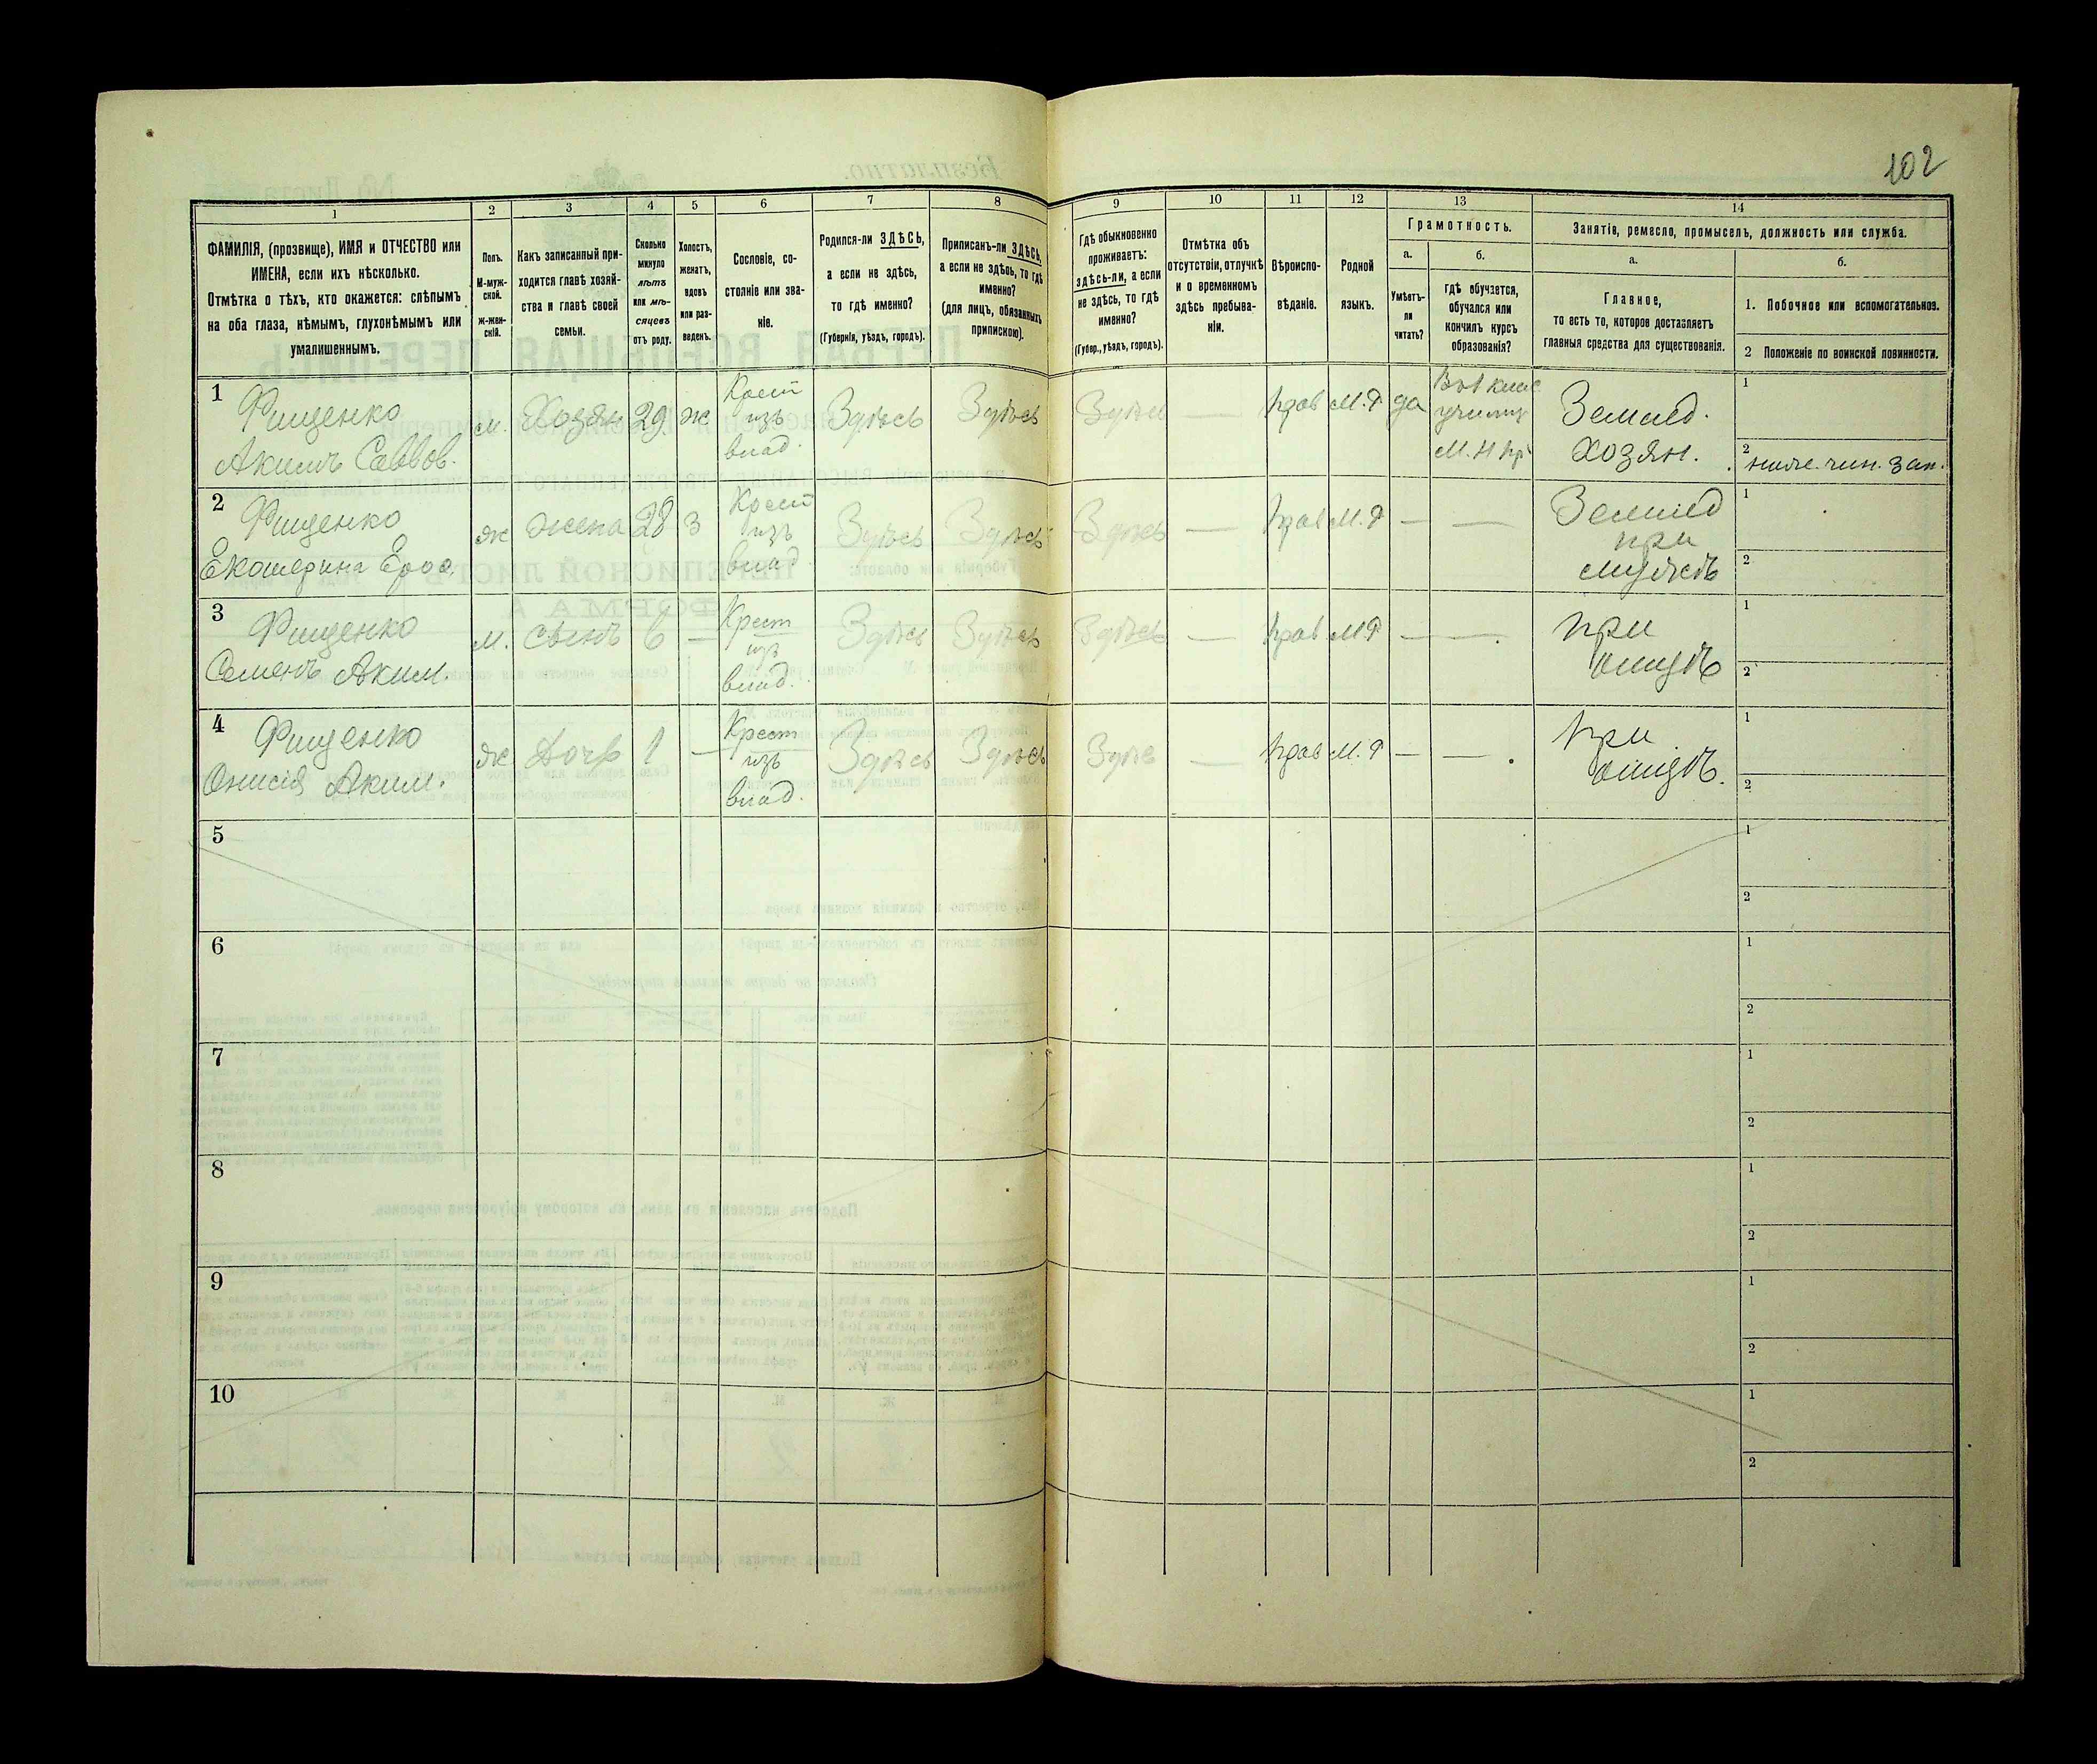 102
1 2 3 4 5 6 7 8 9 10 11 12 13 14
ФАМИЛІЯ, (прозвище), ИМЯ и ОТЧЕСТВО или
ИМЕНА, если ихъ нѣсколько.
Отмѣтка о тѣхъ, кто окажется: слѣпымъ
на оба глаза, нѣмымъ, глухонѣмымъ или
умалишеннымъ.
Полъ.
М-муж-
ской.
ж-жен-
скій.
Какъ записанный при-
ходится главѣ хозяй-
ства и главѣ своей
семьи.
Сколько
минуло
лѣтъ
или мѣ-
сяцевъ
отъ роду.
Холостъ,
женатъ,
вдовъ
или раз-
веденъ.
Сословіе, со-
стояніе или зва-
ніе.
Родился-ли ЗДѢСЬ,
а если не здѣсь,
то гдѣ именно?
(Губернія, уѣздъ, городъ).
Приписанъ-ли ЗДѢСЬ,
а если не здѣсь, то гдѣ
именно?
(для лицъ, обязанныхъ
припискою).
Гдѣ обыкновенно
проживаетъ:
здѣсь-ли, а если
не здѣсь, то гдѣ
именно?
(Губер., уѣздъ, городъ).
Отмѣтка объ
отсутствіи, отлучкѣ
и о временномъ
здѣсь пребыва-
ніи.
Вѣроиспо-
вѣданіе.
Родной
языкъ.
Грамотность.
а.
Умѣетъ-
ли
читать?
б.
гдѣ обучается,
обучался или
кончилъ курсъ
образованія?
Занятіе, ремесло, промыселъ, должность или служба.
а.
Главное,
то есть то, которое доставляетъ
главныя средства для существованія.
б.
1. Побочное или вспомогательное.
2 Положеніе по воинской повинности.
1 Фищенко м. Хозяи 29 ж Крест Здѣсь Здѣсь Здѣсь — прав М.Р да
Акимъ Саввов. изъ
влад.
М.Н.пр
Землед.
Хозяи.
1
2 ниж. чин. зап.
2 Фищенко ж жена 28 З Крест Здѣсь Здѣсь Здѣсь — прав М.Р — — Землед
Екатерина изъ при
влад мужѣ
1
2
3 Фищенко м. сынъ 6 — Крест Здѣсь Здѣсь Здѣсь — прав М.Р — — при
Семенъ Аким. изъ отцѣ
влад.
1
2
4 Фищенко ж Дочь 1 — Крест Здѣсь Здѣсь Здѣс — прав М.Р — — при
Онисія Аким. изъ отцѣ.
влад.
1
2
5
1
2
6
1
2
7
1
2
8
1
2
9
1
2
10
1
2